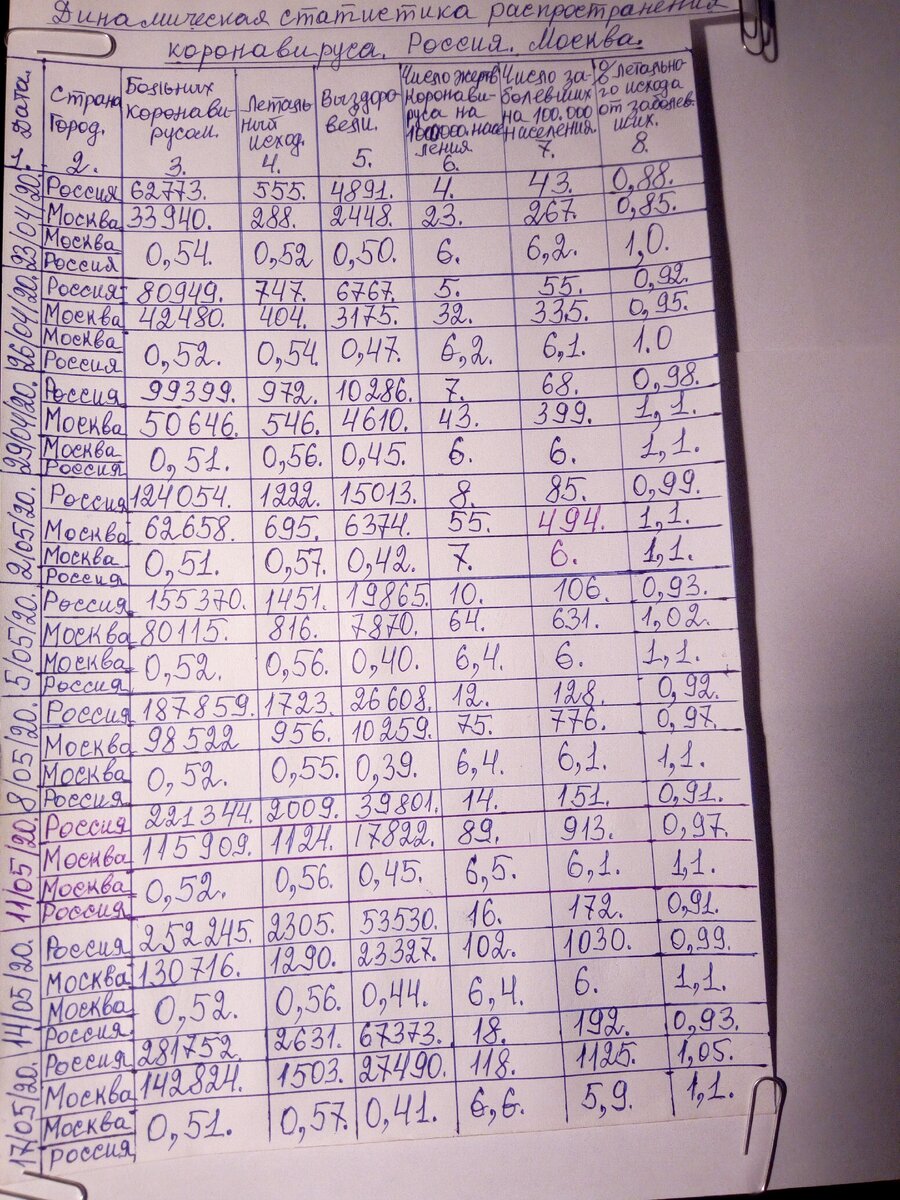 Динамическая статистика распространения
коронавируса. Россия. Москва.
1. Дата.
Страна
Город.
2.
Больных
коронави-
русом.
3.
Леталь
ный
исход.
4.
Выздоро-
вели.
5.
Число жертв
коронави-
руса на
1000000. насе
ления
6.
Число за-
болевших
на 100.000
населения.
7.
% летально-
го исхода
от заболев.
ших.
8.
23/04/20.
Россия 62773. 555. 4891. 4. 43. 0,88.
Москва 33940. 288. 2448. 23. 267. 0,85.
Москва
Россия 0,54. 0,52 0,50. 6. 6,2. 1,0.
26/04/20.
Россия 80949. 747. 6767. 5. 55. 0,92.
Москва 42480. 404. 3175. 32. 335. 0,95.
Москва
Россия 0,52. 0,54. 0,47. 6,2. 6,1. 1.0
29/04/20.
Россия 99399. 972. 10286. 7. 68. 0,98.
Москва 50646. 546. 4610. 43. 399. 1,1.
Москва
Россия 0,51. 0,56. 0,45. 6. 6. 1,1.
2/05/20.
Россия 124054. 1222. 15013. 8. 85. 0,99.
Москва 62658. 695. 6374. 55. 494. 1,1.
Москва
Россия 0,51. 0,57. 0,42. 7. 6. 1,1.
5/05/20.
Россия 155370. 1451. 19865. 10. 106. 0,93.
Москва 80115. 816. 7870. 64. 631. 1,02.
Москва
Россия 0,52. 0,56. 0,40. 6,4. 6. 1,1.
8/05/20.
Россия 187859. 1723. 26608. 12. 128. 0,92.
Москва 98522 956. 10259. 75. 776. 0,97.
Москва
Россия 0,52. 0,55. 0,39. 6,4. 6,1. 1,1.
11/05/20.
Россия 221344. 2009. 39801. 14. 151. 0,91.
Москва 115909. 1124. 17822. 89. 913. 0,97.
Москва
Россия 0,52. 0,56. 0,45. 6,5. 6,1. 1,1.
14/05/20.
Россия 252245. 2305. 53530. 16. 172. 0,91.
Москва 130716. 1290. 23327. 102. 1030. 0,99.
Москва
Россия 0,52. 0,56. 0,44. 6,4. 6. 1,1.
17/05/20.
Россия 281752. 2631. 67373. 18. 192. 0,93.
Москва 142824. 1503. 27490. 118. 1125. 1,05.
Москва
Россия 0,51. 0,57. 0,41. 6,6. 5,9. 1,1.